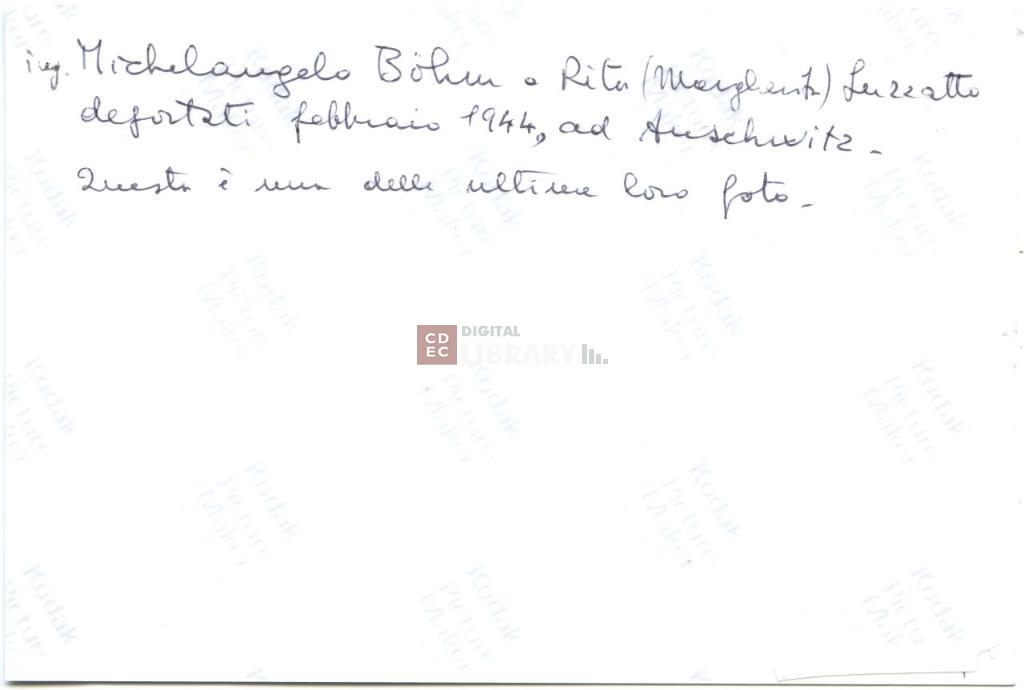 ing. Michelangelo Böhm e Rita (Margherita) Luzzatto
deportati febbraio 1944, ad Auschwitz.
Questa è una delle ultime loro foto.
CDEC DIGITAL LIBRARY
Kodak
Picture
Maker